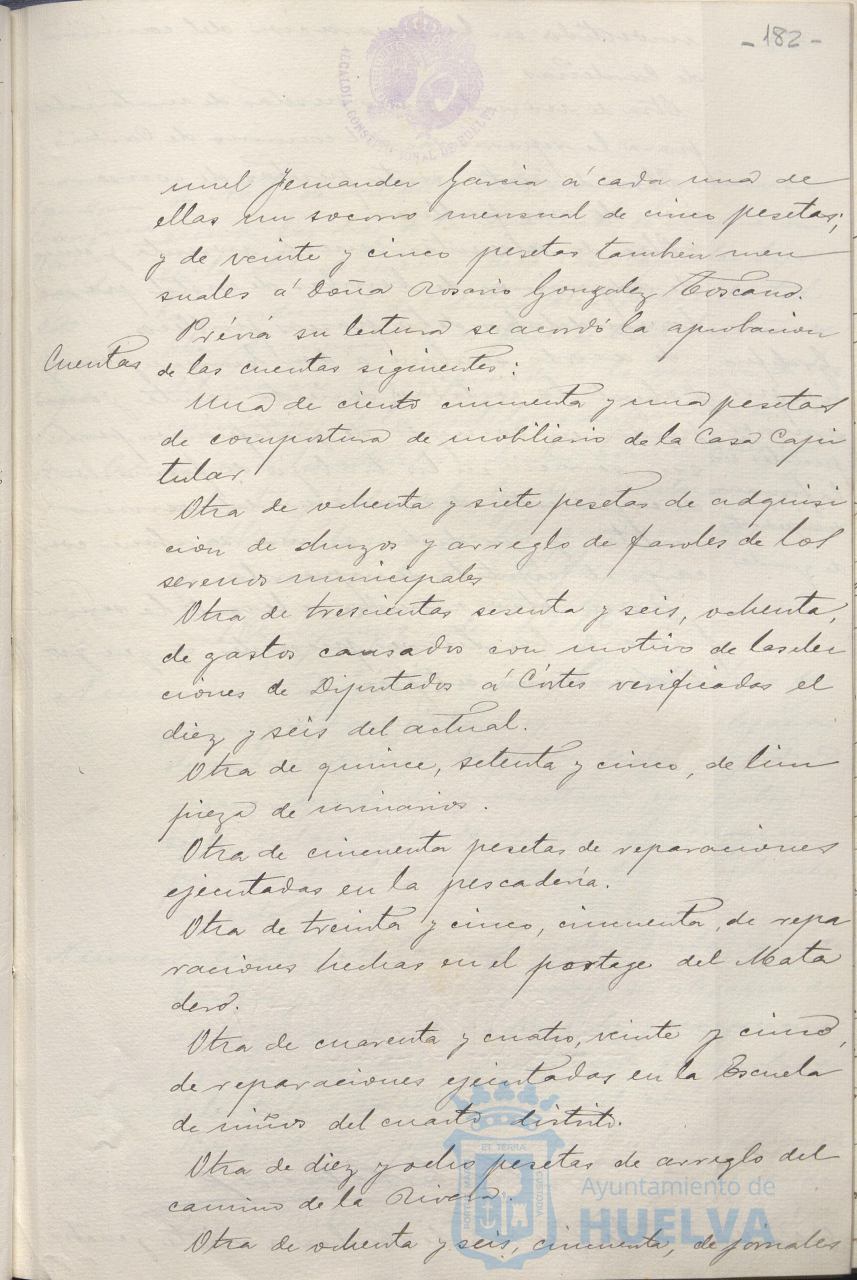 - 182 -
ALCALDIA CONSTITUCIONAL DE HUELVA
nuel Fernandez Garcia á cada una de
ellas un socorro mensual de cinco pesetas;
y de veinte y cinco pesetas tambien men
suales á Doña Rosario Gonzalez Toscano.
Prévia su lectura se acordó la aprobacion
Cuentas
de las cuentas siguientes:
Una de ciento cincuenta y una pesetas
de compostura de mobiliario de la Casa Capi
tular.
Otra de ochenta y siete pesetas de adquisi
cion de chuzos y arreglo de faroles de los
serenos municipales
Otra de trescientas sesenta y seis, ochenta,
de gastos causados con motivo de las elec
ciones de Diputados á Córtes verificadas el
diez y seis del actual.
Otra de quince, setenta y cinco, de lim
pieza de urinarios.
Otra de cincuenta pesetas de reparaciones
ejecutadas en la pescadería.
Otra de treinta y cinco, cincuenta, de repa
raciones hechas en el postage del Mata
dero.
Otra de cuarenta y cuatro, veinte y cinco,
de reparaciones ejecutadas en la Escuela
de niños del cuarto distrito.
Otra de diez y ocho pesetas de arreglo del
camino de la Rivera.
Otra de ochenta y seis, cincuenta, de jornales
ET TERRA
Ayuntamiento de
HUELVA